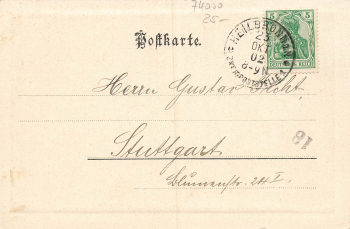 74000
25-
Postkarte.
HEILBRONN
25
OKT
02
8-9N
ZWEIGPOSTSTELLE
5 5
DEUTSCHES REICH
Herrn Gustav
Stuttgart
Blumenstr. 24 I.
18